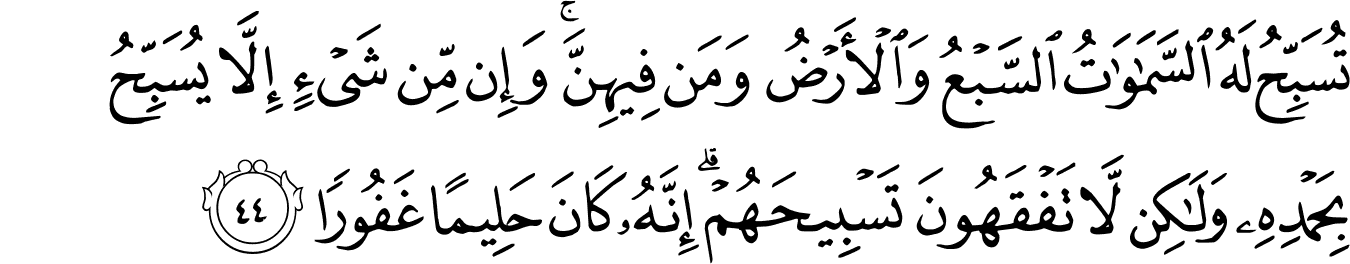 تُسَبِّحُ لَهُ ٱلسَّمَـٰوَٰتُ ٱلسَّبۡعُ وَٱلۡأَرۡضُ وَمَن فِيهِنَّۚ وَإِن مِّن شَىۡءٍ إِلَّا يُسَبِّحُ
بِحَمۡدِهِۦ وَلَـٰكِن لَّا تَفۡقَهُونَ تَسۡبِيحَهُمۡۗ إِنَّهُۥ كَانَ حَلِيمًا غَفُورًا ٤٤